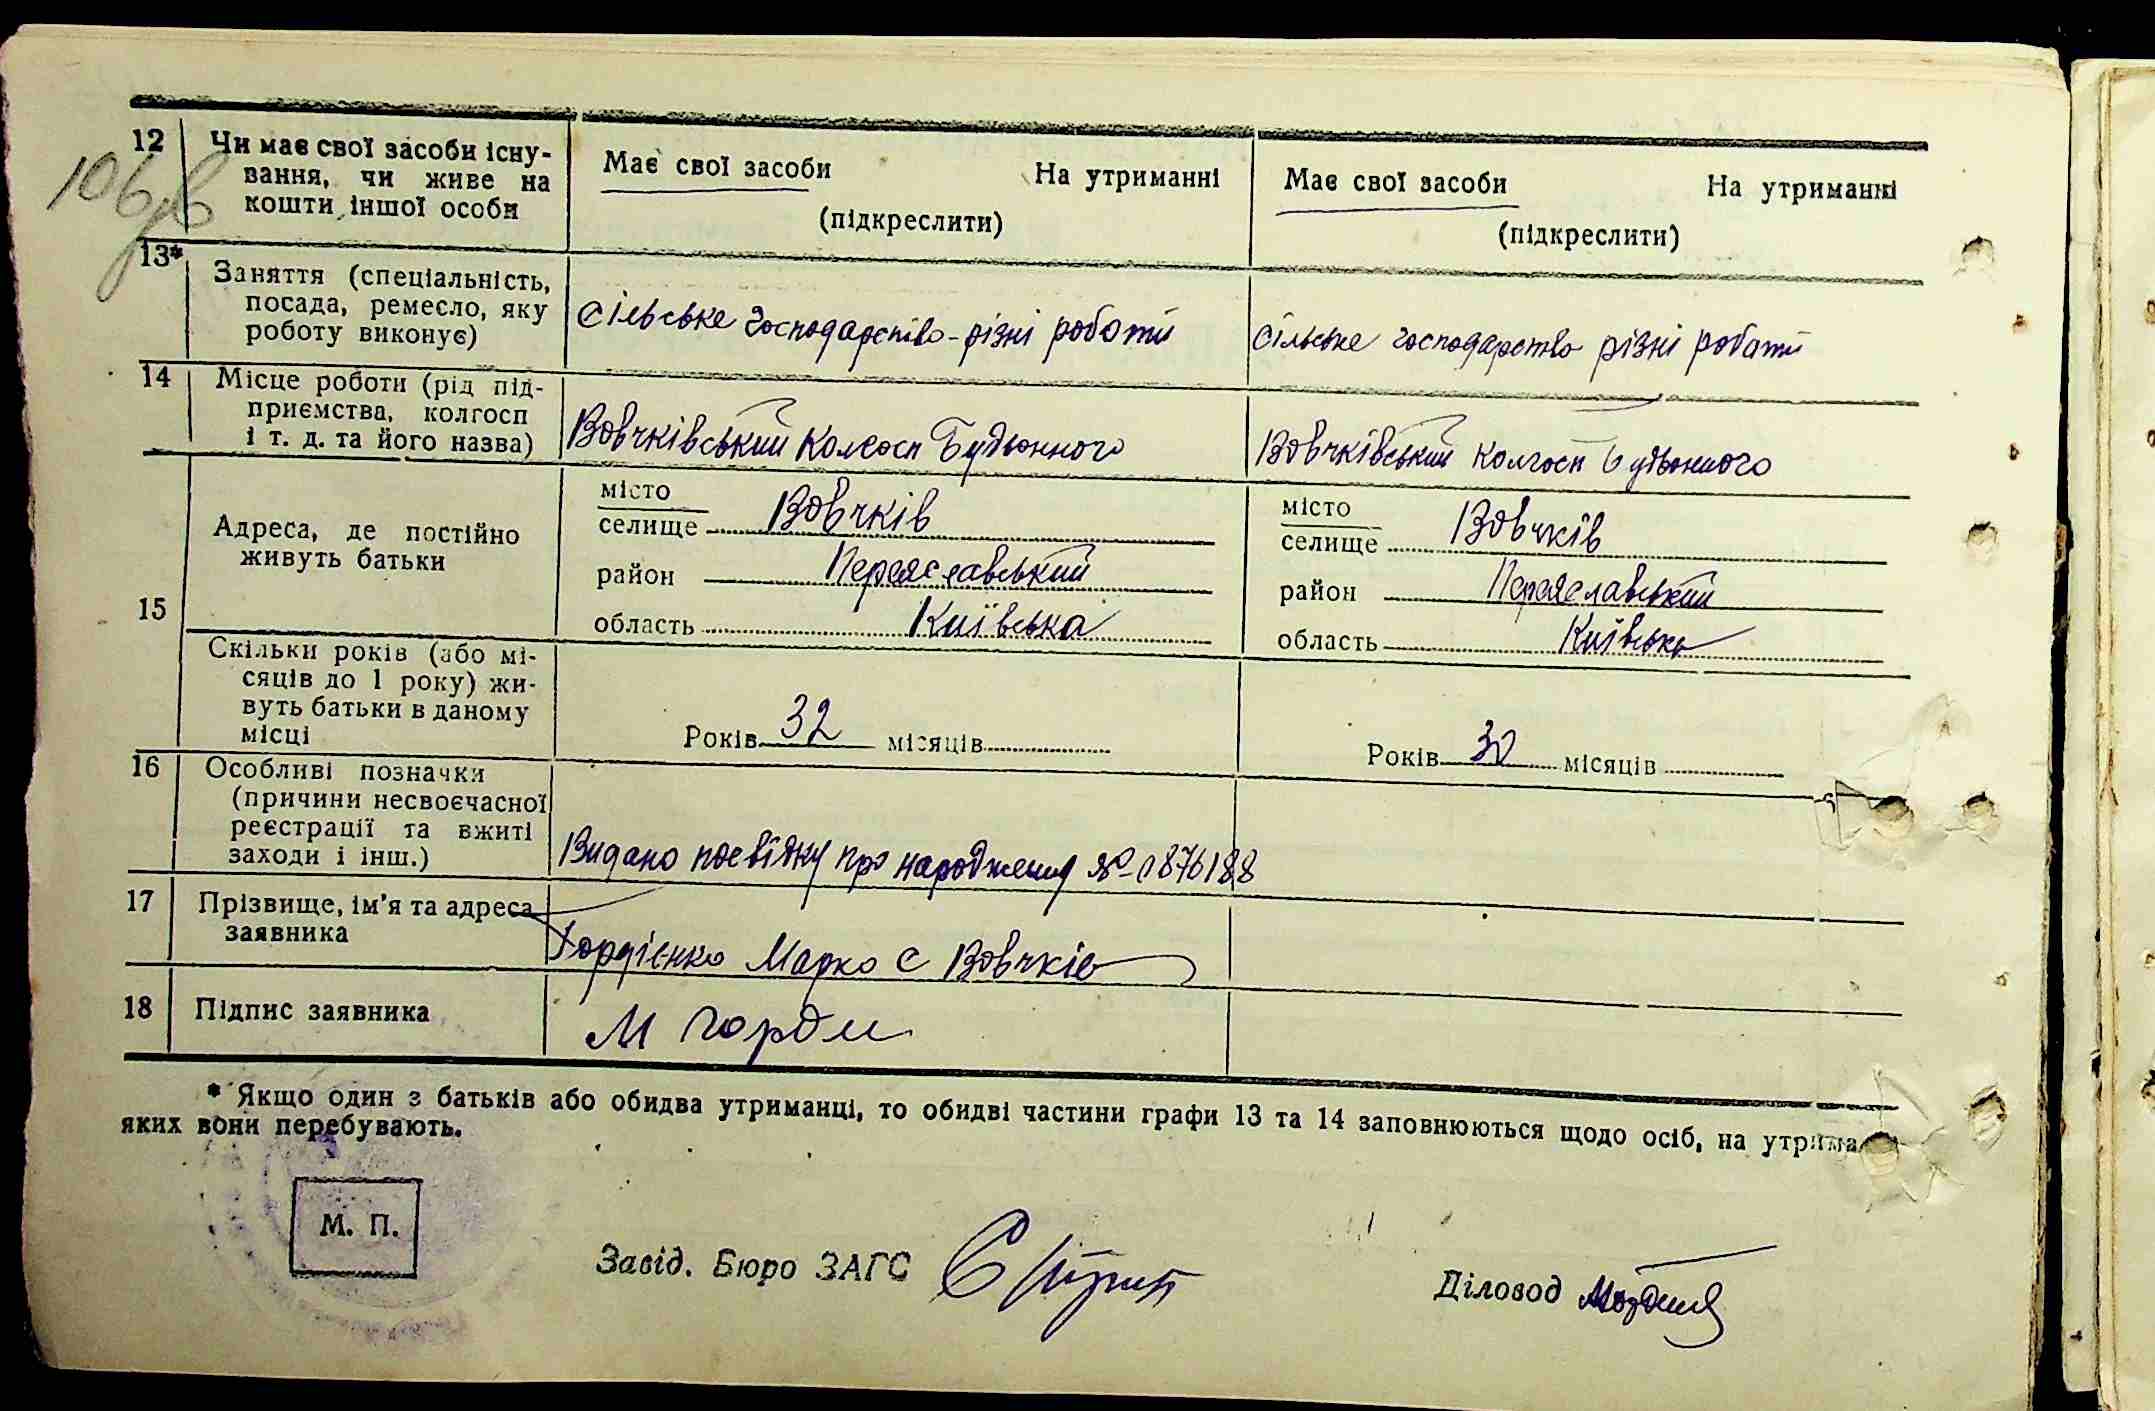 106зв
12 Чи має свої засоби існу-
вання, чи живе на
кошти іншої особи
Має свої засоби На утриманні
(підкреслити)
Має свої засоби На утриманні
(підкреслити)
13* Заняття (спеціальність,
посада, ремесло, яку
роботу виконує)
Сільське господарство - різні роботи
Сільське господарство різні роботи
14 Місце роботи (рід під-
приємства, колгосп
і т. д. та його назва)
Вовчківський колгосп Будьонного
Вовчківський колгосп Будьонного
15 Адреса, де постійно
живуть батьки
місто
селище Вовчків
район Переяславський
область Київська
місто
селище Вовчків
район Переяславський
область Київська
Скільки років (або мі-
сяців до 1 року) жи-
вуть батьки в даному
місці
Років 32 місяців
Років 30 місяців
16 Особливі позначки
(причини несвоєчасної
реєстрації та вжиті
заходи і інш.)
Видано посвідку про народження № 0876188
17 Прізвище, ім'я та адреса
заявника
Гордієнко Марко с Вовчків
18 Підпис заявника
М Горди
* Якщо один з батьків або обидва утриманці, то обидві частини графи 13 та 14 заповнюються щодо осіб, на утрима
яких вони перебувають.
М. П.
Завід. Бюро ЗАГС
Діловод